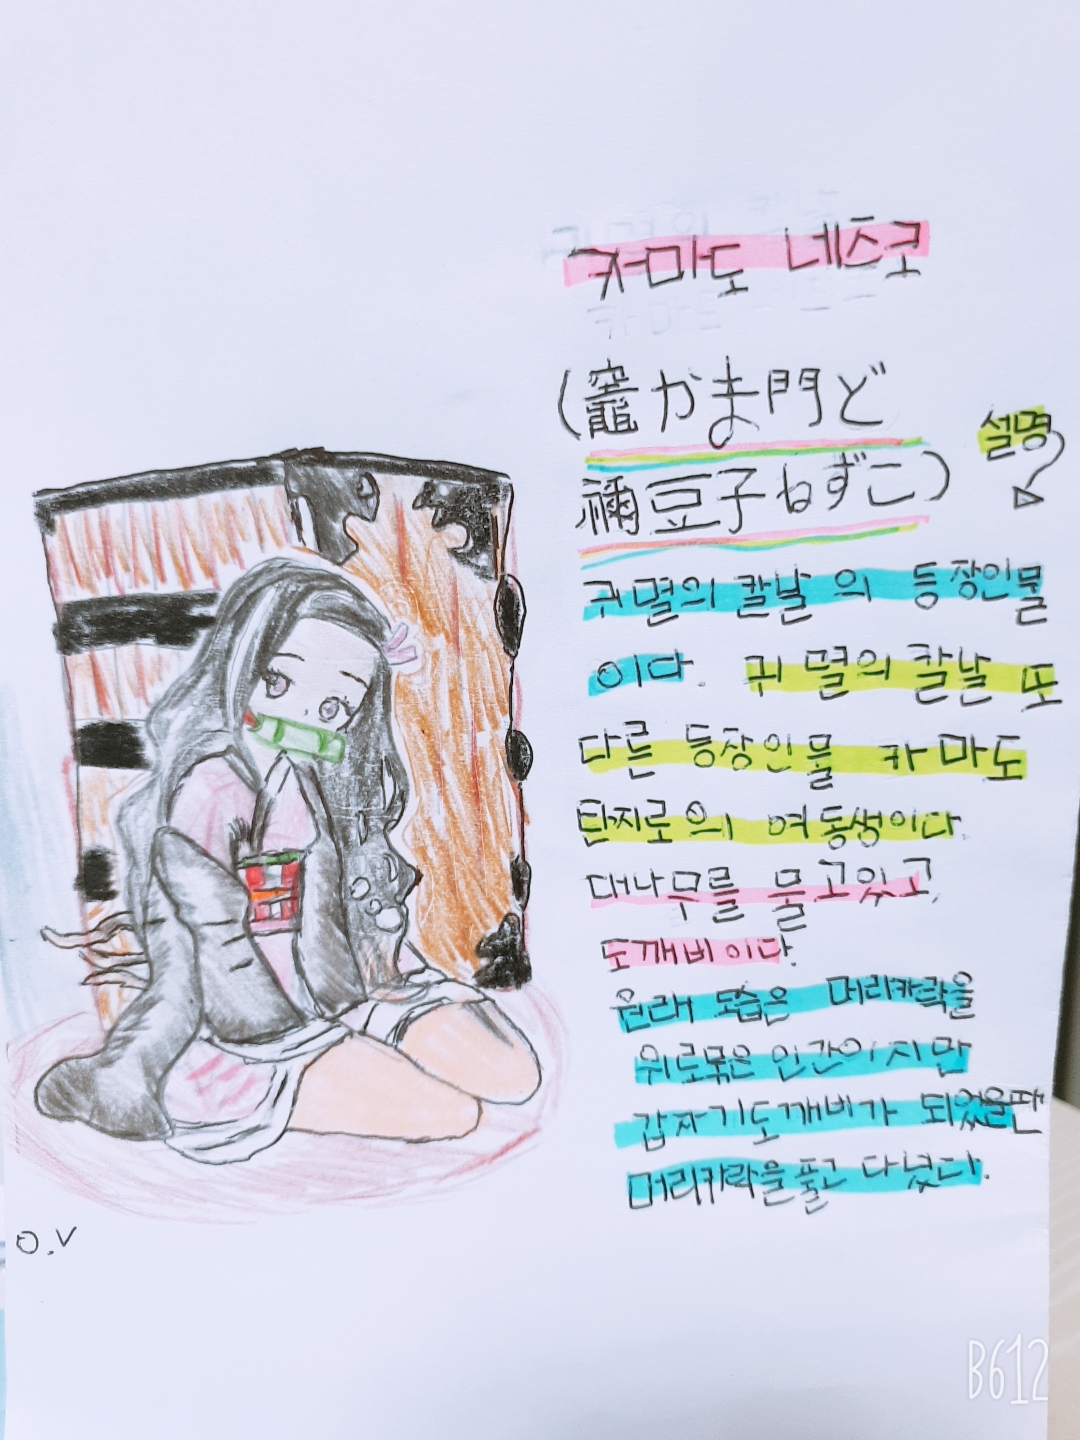 카마도 네즈코
(竈かま門ど
禰豆子ねずこ)
설명
귀멸의 칼날 의 등장인물
이다. 귀멸의 칼날 또
다른 등장인물 카마도
탄지로의 여동생이다.
대나무를 물고있고,
도깨비이다.
원래 모습은 머리카락을
위로묶은 인간이지만
갑자기도깨비가 되었을땐
머리카락을풀고 다녔다.
O.V
B612